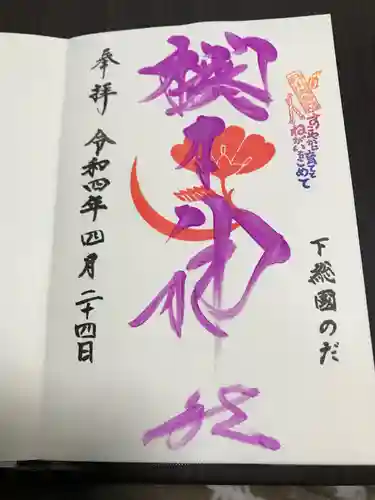 すこやかに育てと
ねがいをこめて
下総國のだ
櫻木神社
奉拝 令和四年四月二十四日